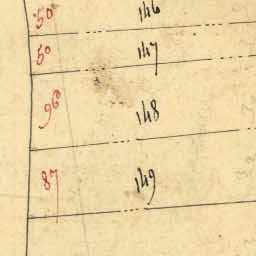 50 146
50 147
96 148
87 149